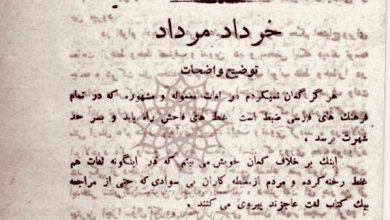 خرداد مرداد
توضیح واضحات
هرگز گمان نمیکردم در لغات معموله و مشهوره که در تمام
فرهنگ های فارسی ضبط است غلط های فاحش راه یابد و بسر حد
شهرت برسد .
اینک بر خلاف گمان خویش می بینم که در اینگونه لغات هم
غلط رخنه کرده و مردم از مغلطه کاران بی سوادی که حتی از مراجعه
بیک کتاب لغت عاجزند پیروی می کنند .